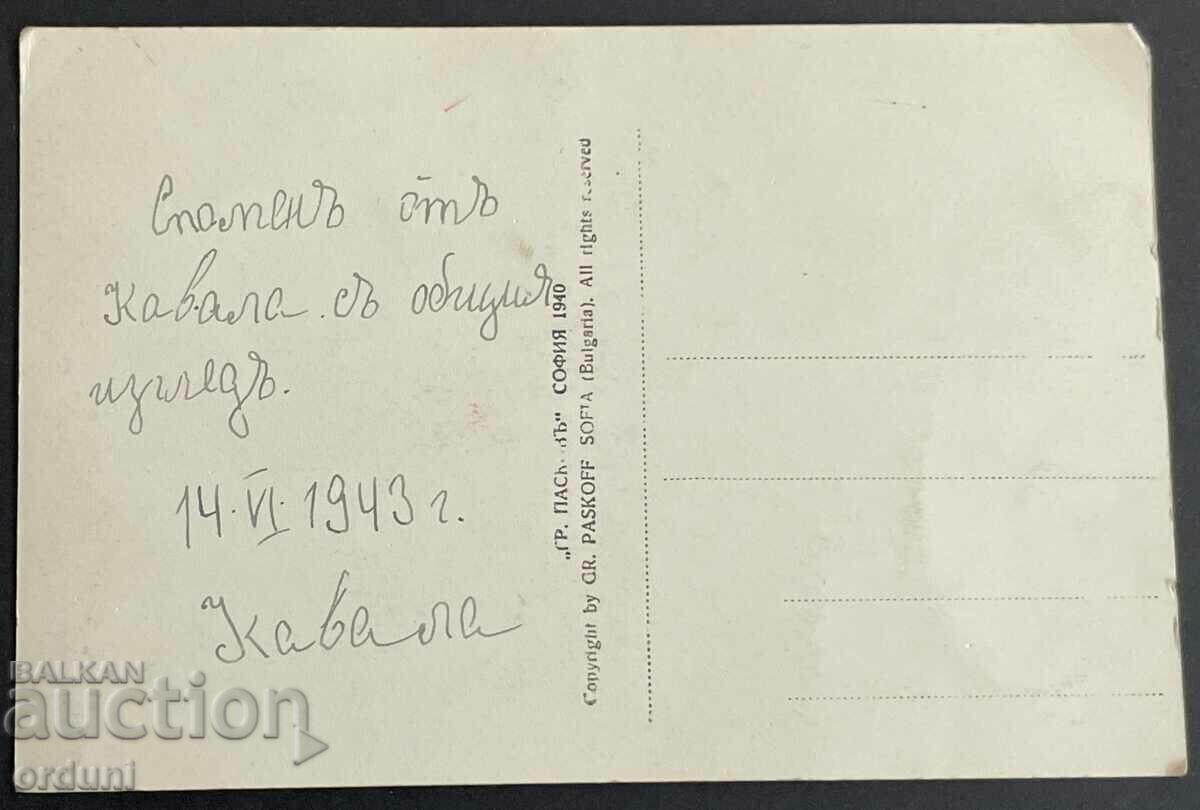 Споменъ отъ
Кавала съ общия
изгледъ.
14·VI·1943 г.
Кавала
„ГР. ПАСКОВЪ" СОФИЯ 1940
Copyright by GR. PASKOFF SOFIA (Bulgaria). All rights reserved
BALKAN
auction
orduni